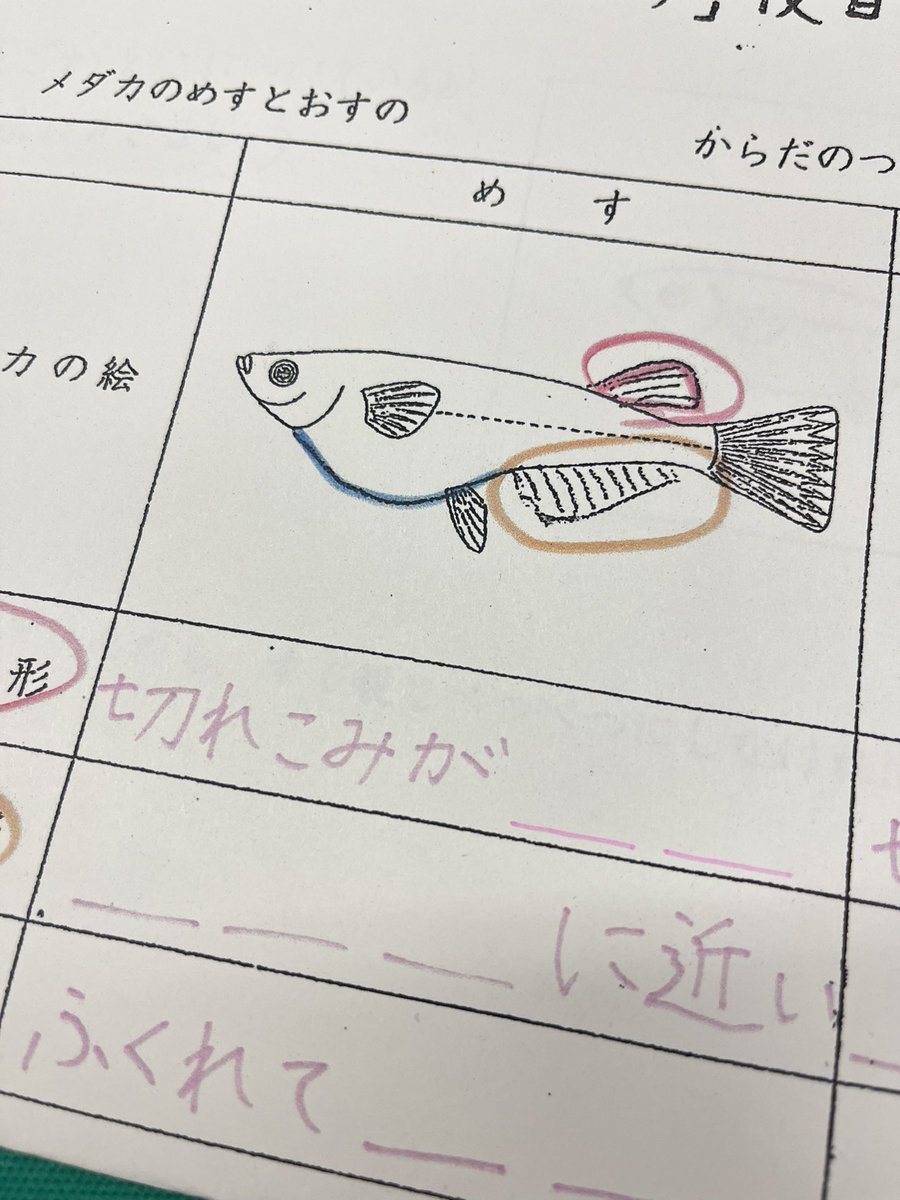 メダカのめすとおすの
からだのつ
めす
カの絵
形
切れこみが
に近い
ふくれて